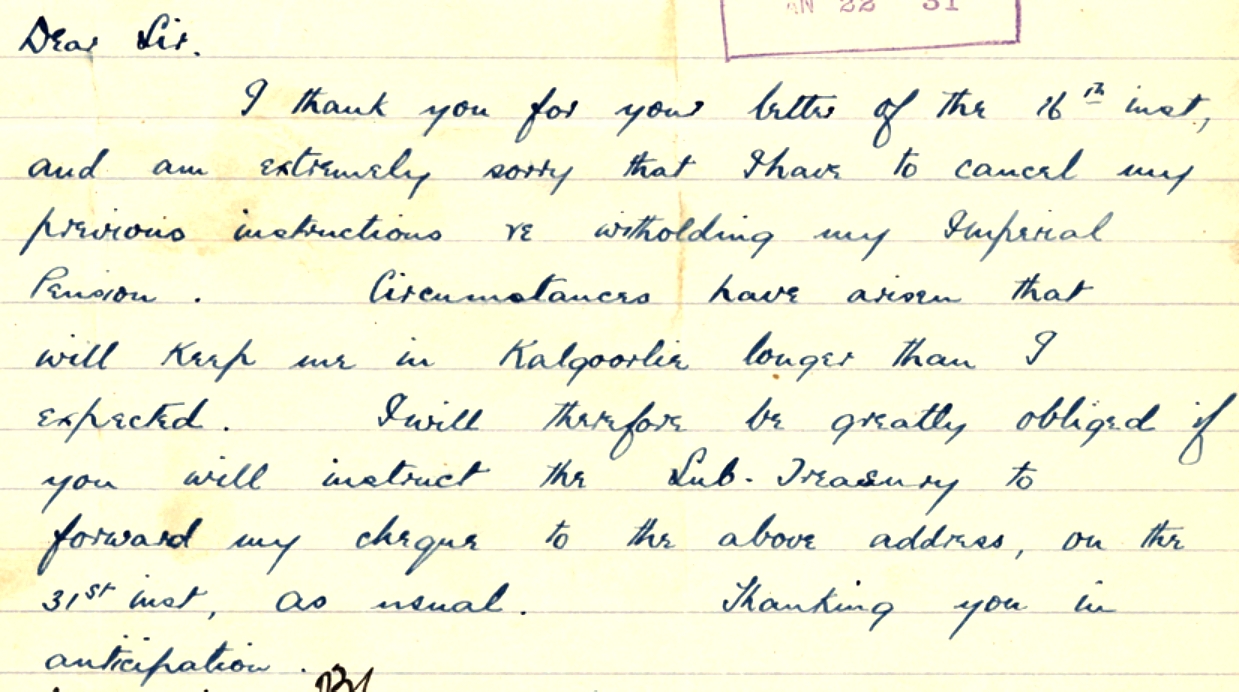 AN 22 31
Dear Sir.
I thank you for your letter of the 16th inst,
and am extremely sorry that I have to cancel my
previous instructions re witholding my Imperial
Pension. Circumstances have arisen that
will keep me in Kalgoorlie longer than I
expected. I will therefore be greatly obliged if
you will instruct the Sub-Treasury to
forward my cheque to the above address, on the
31st inst, as usual. Thanking you in
anticipation.